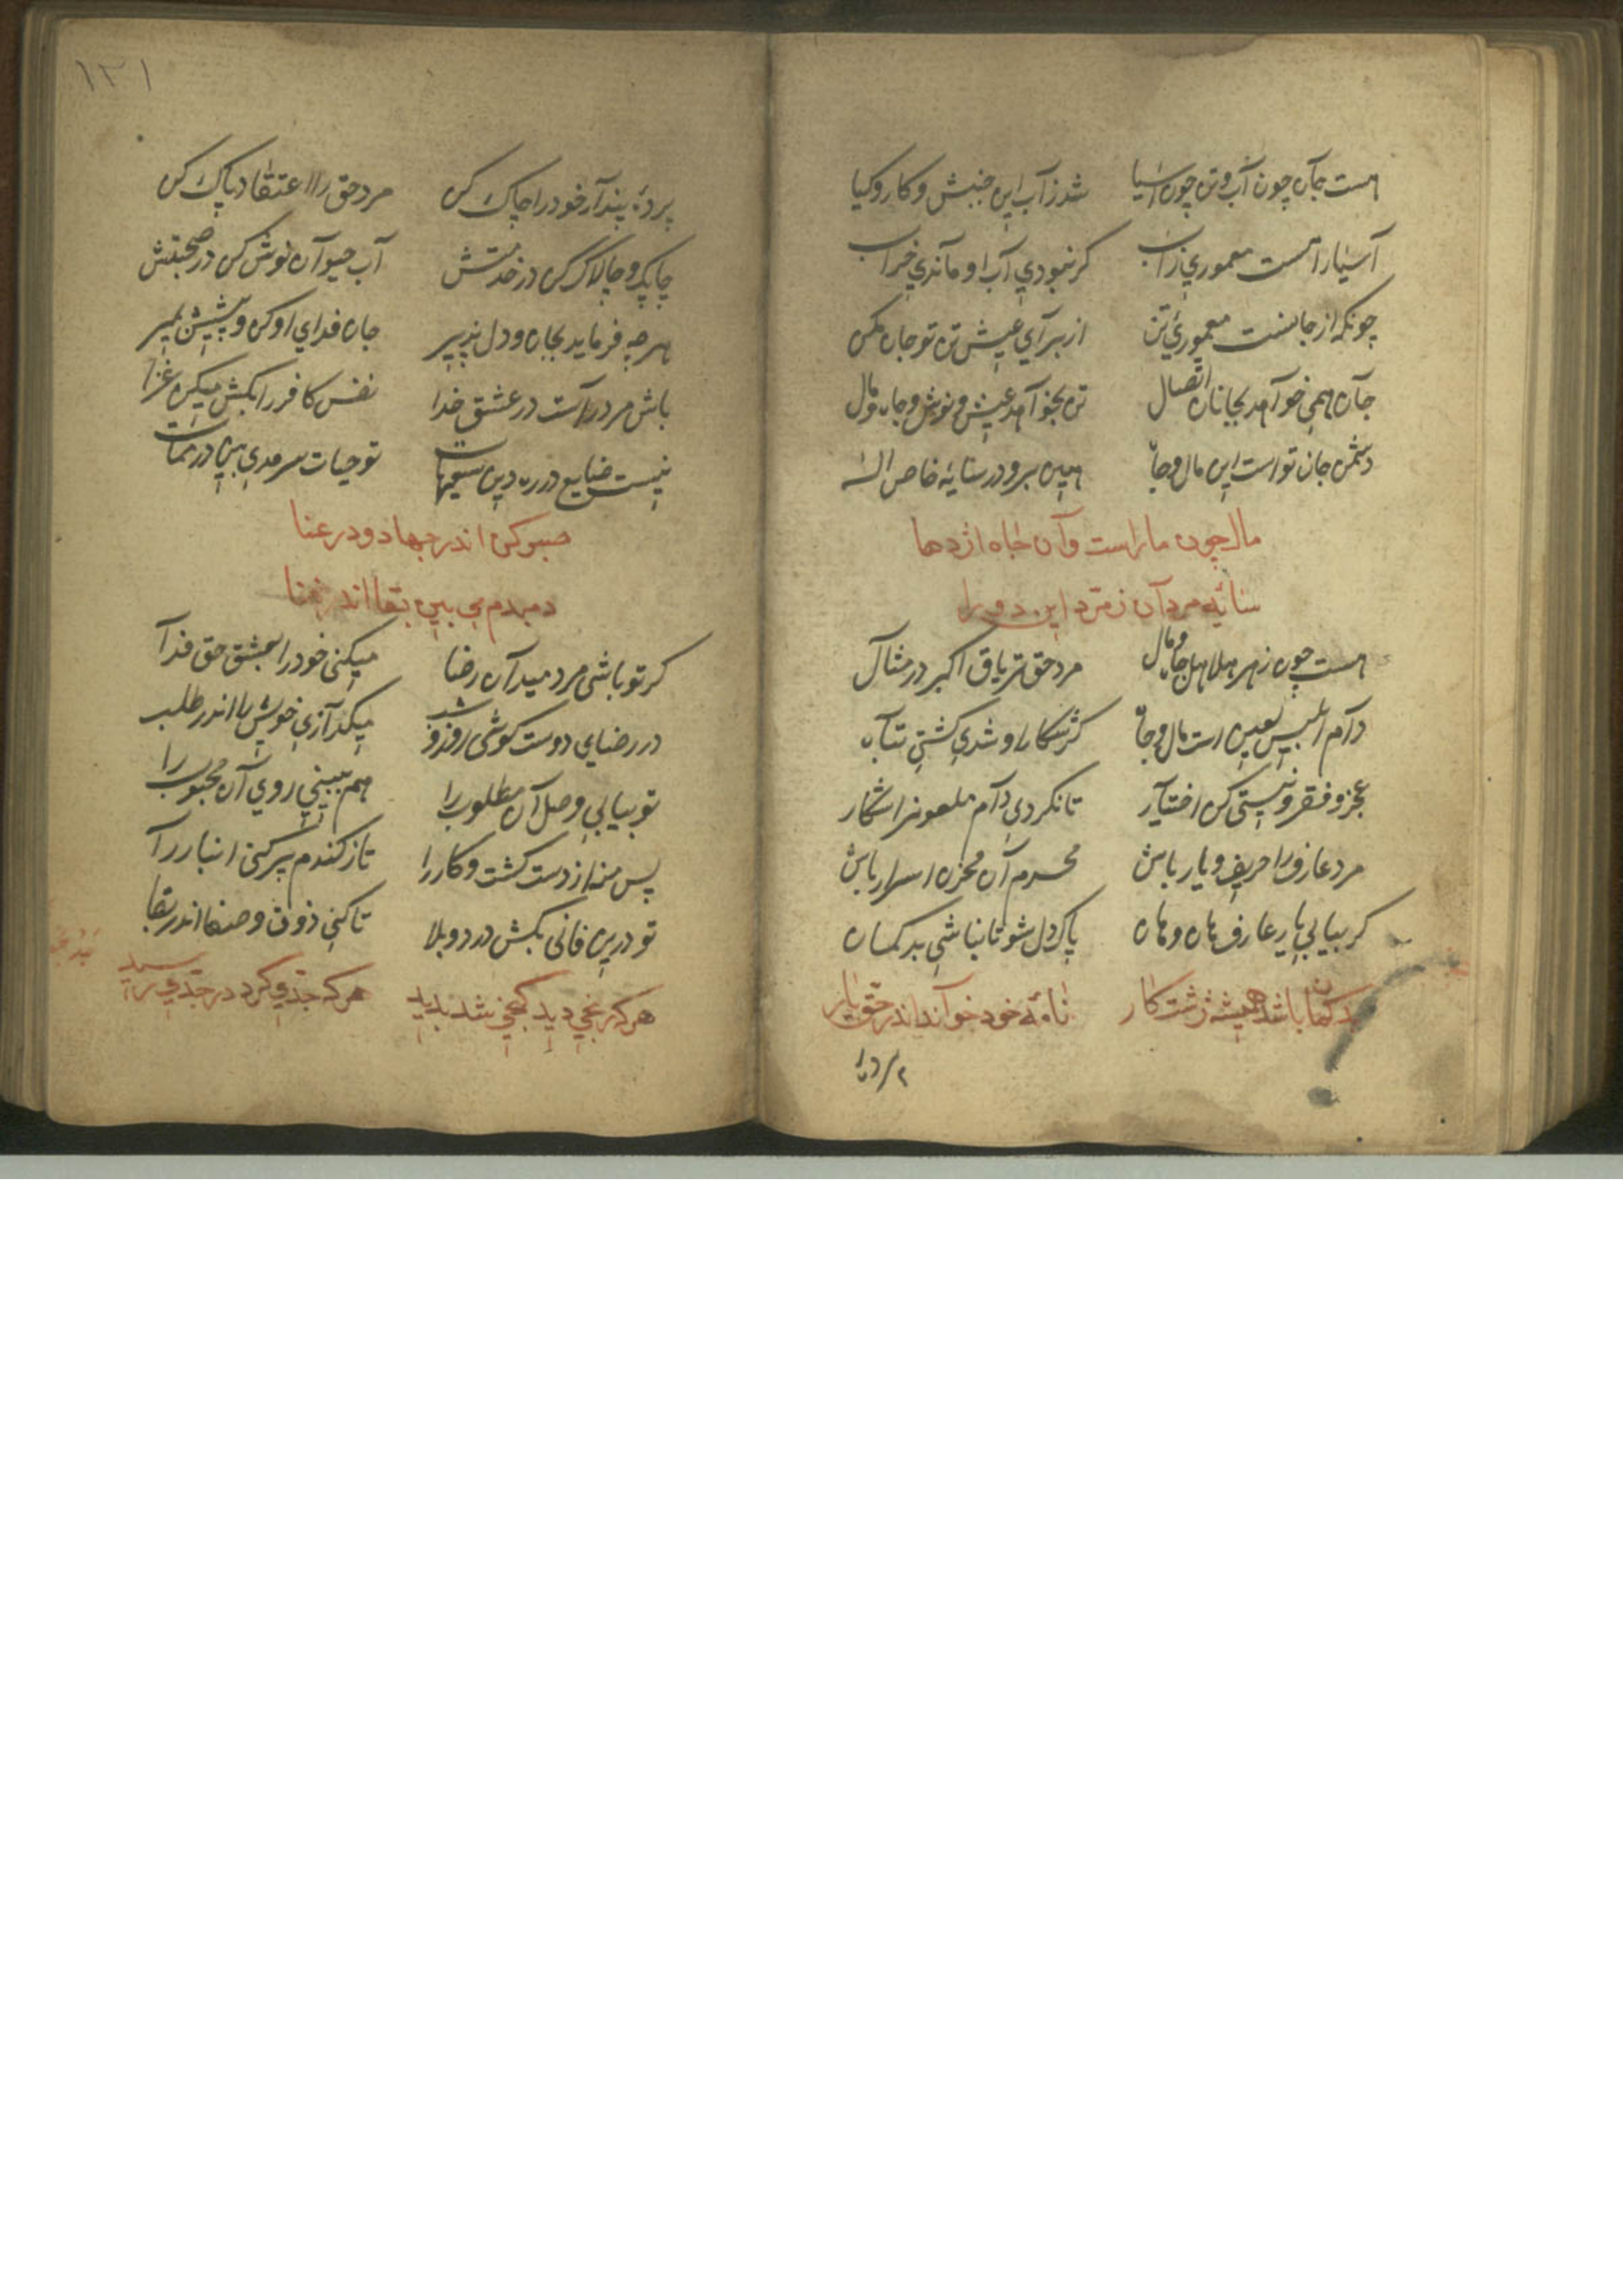 هست جان چون آب و تن چون آسیا شد ز آب این جنبش و کار و کیا
آسیا را هست معموری ز آب کر نبودی آب او ماندی خراب
چونکه از جانست معموری تن از برای عیش تن تو جان مکن
جان همی خواهد بجانان اتصال تن بخواهد عیش و نوش و جاه و مال
دشمن جان تو است این مال و جاه هین برو در سایهٔ خاص اله
مال چون مار است و آن جاه اژدها
سایهٔ مردان زمرد این دو را
هست چون زهر هلاهل جاه و مال مرد حق تریاق اکبر در مثال
دام ابلیس لعین است مال و جاه کش شکار او شدی کشتی تباه
عجز و فقر و نیستی کن اختیار تا نکردی دام ملعونرا شکار
مرد عارف را حریف و یار باش محرم آن مخزن اسرار باش
کر بیابی یار عارف هان و هان پاک دل شو تا نباشی بد کمان
بد کمان باشد همیشه زشت کار نامهٔ خود خواند اندر حق یار
پردهٔ پندار خود را چاک کن مرد حق را اعتقاد پاک کن
چابک و چالاک کن در خدمتش آب حیوان نوش کن در صحبتش
هرچه فرماید بجان و دل پذیر جان فدای او کن و پیشش بمیر
باش مرد راست در عشق خدا نفس کافر را بکش میکن غزا
نیست ضایع در ره دین سعیهات تو حیات سرمدی بین در ممات
صبر کن اندر جهاد و در عنا
دمبدم می بین بقا اندر فنا
کر تو باشی مرد میدان رضا میکنی خود را بعشق حق فدا
در رضای دوست کوشی روز و شب میکدازی خویش را اندر طلب
تو بیابی وصل آن مطلوب را هم ببینی روی آن محبوب را
پس منه از دست کشت و کار را تا ز کندم پر کنی انبار را
تو درین فانی بکش درد و بلا تا کنی ذوق و صفا اندر بقا
هر که رنجی دید کنجی شد پدید هر که جدی کرد در جدی رسید
۱۲۱